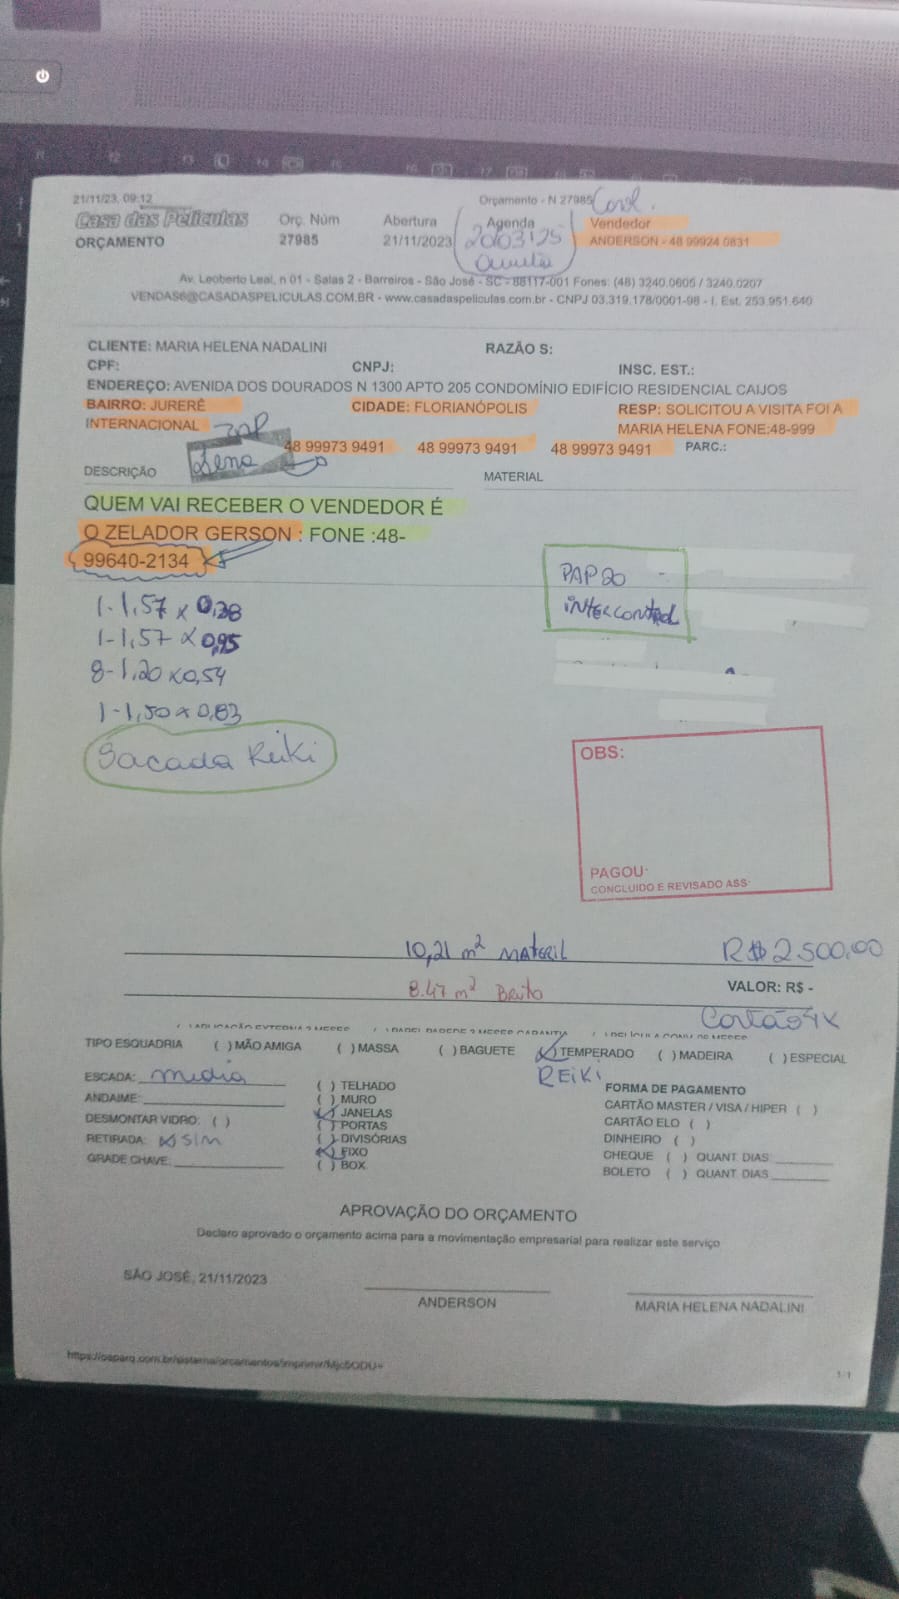 21/11/23, 09:12
Orçamento - N 27985
Casa das Películas
ORÇAMENTO
Orç. Núm
27985
Abertura
21/11/2023
Agenda
20/03/25
Vendedor
ANDERSON - 48 99924 0831
Av. Leoberto Leal, n 01 - Salas 2 - Barreiros - São José - SC - 88117-001 Fones: (48) 3240.0605 / 3240.0207
VENDAS6@CASADASPELICULAS.COM.BR - www.casadaspeliculas.com.br - CNPJ 03.319.178/0001-98 - I. Est. 253.951.640
CLIENTE: MARIA HELENA NADALINI
RAZÃO S:
CPF:
CNPJ:
INSC. EST.:
ENDEREÇO: AVENIDA DOS DOURADOS N 1300 APTO 205 CONDOMÍNIO EDIFÍCIO RESIDENCIAL CAIJOS
BAIRRO: JURERÊ
INTERNACIONAL
CIDADE: FLORIANÓPOLIS
RESP: SOLICITOU A VISITA FOI A
MARIA HELENA FONE:48-999
Zap
Lena
48 99973 9491 48 99973 9491 48 99973 9491 PARC.:
DESCRIÇÃO
MATERIAL
QUEM VAI RECEBER O VENDEDOR É
O ZELADOR GERSON : FONE :48-
99640-2134
PAP 20
INTERCONTROL
1-1,57 x 0,38
1-1,57 x 0,95
8-1,20 x 0,54
1-1,50 x 0,83
Sacada Reiki
OBS:
PAGOU-
CONCLUIDO E REVISADO ASS-
10,21 m² MATERIL
R$ 2.500,00
8.47 m² Bruto
VALOR: R$ -
Cartão 4x
TIPO ESQUADRIA ( ) MÃO AMIGA ( ) MASSA ( ) BAGUETE (✓) TEMPERADO ( ) MADEIRA ( ) ESPECIAL
REIKI
ESCADA: media
ANDAIME:
DESMONTAR VIDRO: ( )
RETIRADA: (x) SIM
GRADE CHAVE:
( ) TELHADO
( ) MURO
(✓) JANELAS
( ) PORTAS
( ) DIVISÓRIAS
(✓) FIXO
( ) BOX
FORMA DE PAGAMENTO
CARTÃO MASTER / VISA / HIPER ( )
CARTÃO ELO ( )
DINHEIRO ( )
CHEQUE ( ) QUANT. DIAS:
BOLETO ( ) QUANT. DIAS
APROVAÇÃO DO ORÇAMENTO
Declaro aprovado o orçamento acima para a movimentação empresarial para realizar este serviço
SÃO JOSÉ, 21/11/2023
ANDERSON
MARIA HELENA NADALINI
1/1